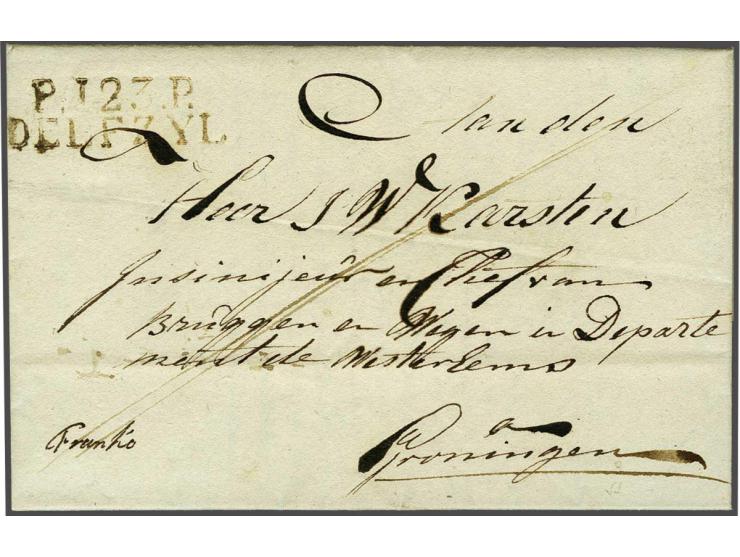 P.123.P.
DELFZYL
Aan den
Heer J W Karsten
Insinijeur en Chef van
Bruggen en Wegen in Departe
ment de Westerems
a
Groningen
Franko